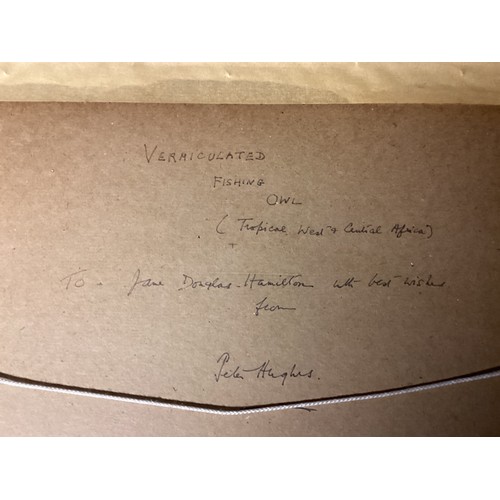 VERMICULATED
FISHING
OWL
(Tropical West & Central Africa)
To. Jane Douglas-Hamilton with best wishes
from
Peter Hughes.